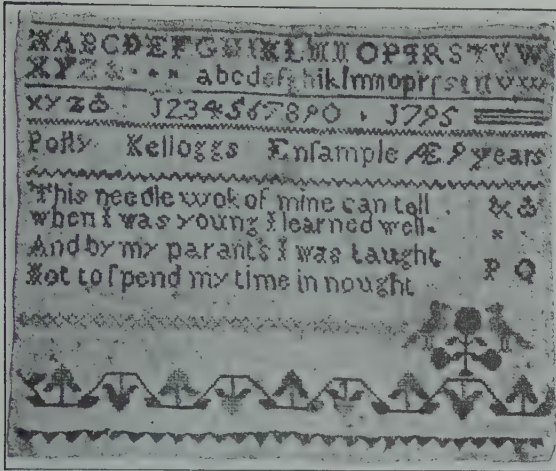 XABCDEFGHIKLMNOPQRSTVW
XYZ& abcdefghiklmnopqrſstuvwx
xyz& J234567890 . J795
Polly Kelloggs Enſample Æ 9 years
This needle wok of mine can tell . &
when I was young I learned well.
And by my parants I was taught P Q
Not to ſpend my time in nought